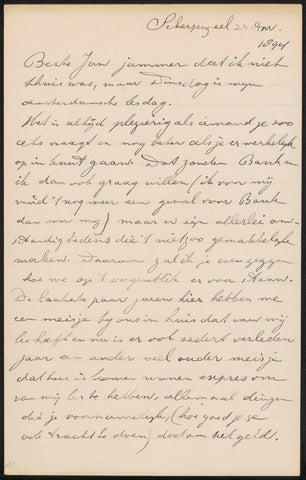 Scherpenzeel 27 Nov.
1894
Beste Jan jammer dat ik niet
thuis was, maar Dinsdag is mijn
Amsterdamsche lesdag.
Het is altijd plezierig als iemand je zoo
iets vraagt en nog beter als je er werkelijk
op in kunt gaan. Dat zouden Bauk en
ik dan ook graag willen (ik voor mij
vind 't nog meer een geval voor Bauk
dan voor mij) maar er zijn allerlei om-
standigheden die 't niet zoo gemakkelijk
maken. Daarom zal ik je even zeggen
hoe we op 't oogenblik er voor staan.
De laatste paar jaren hier hebben we
een meisje bij ons in huis dat van mij
les heeft en nu is er ook sedert verleden
jaar een ander veel ouder meisje
dat hier is komen wonen expres om
van mij les te hebben, allemaal dingen
die je voornamelijk, (hoe goed je ze
ook tracht te doen) doet om het geld.